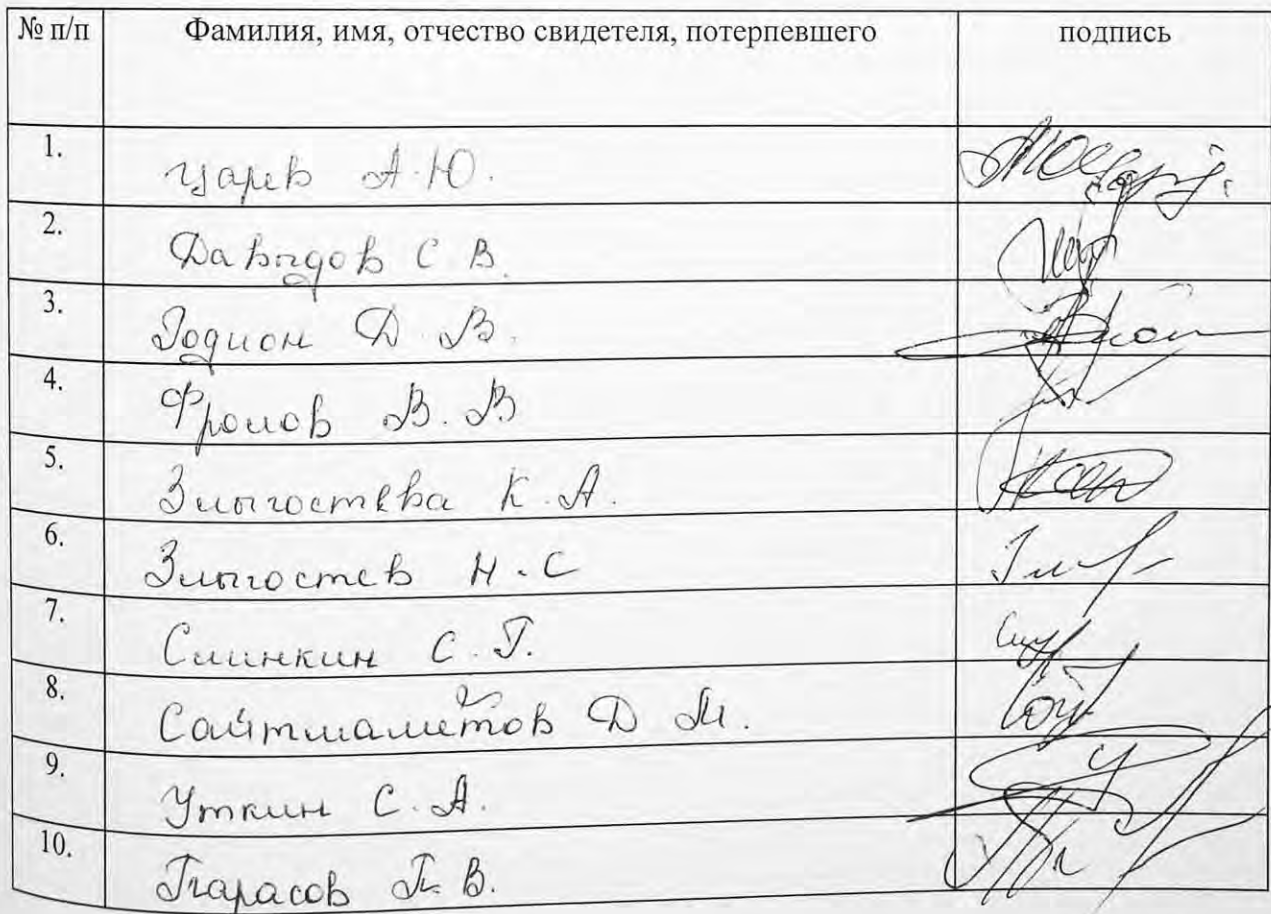 № п/п Фамилия, имя, отчество свидетеля, потерпевшего подпись
1. Царев А.Ю.
2. Давыдов С В.
3. Годион Д. В.
4. Фролов В. В
5. Злыгостева К. А.
6. Злыгостев Н. С
7. Слинкин С. Г.
8. Сайтмаметов Д М.
9. Уткин С. А.
10. Тарасов В.